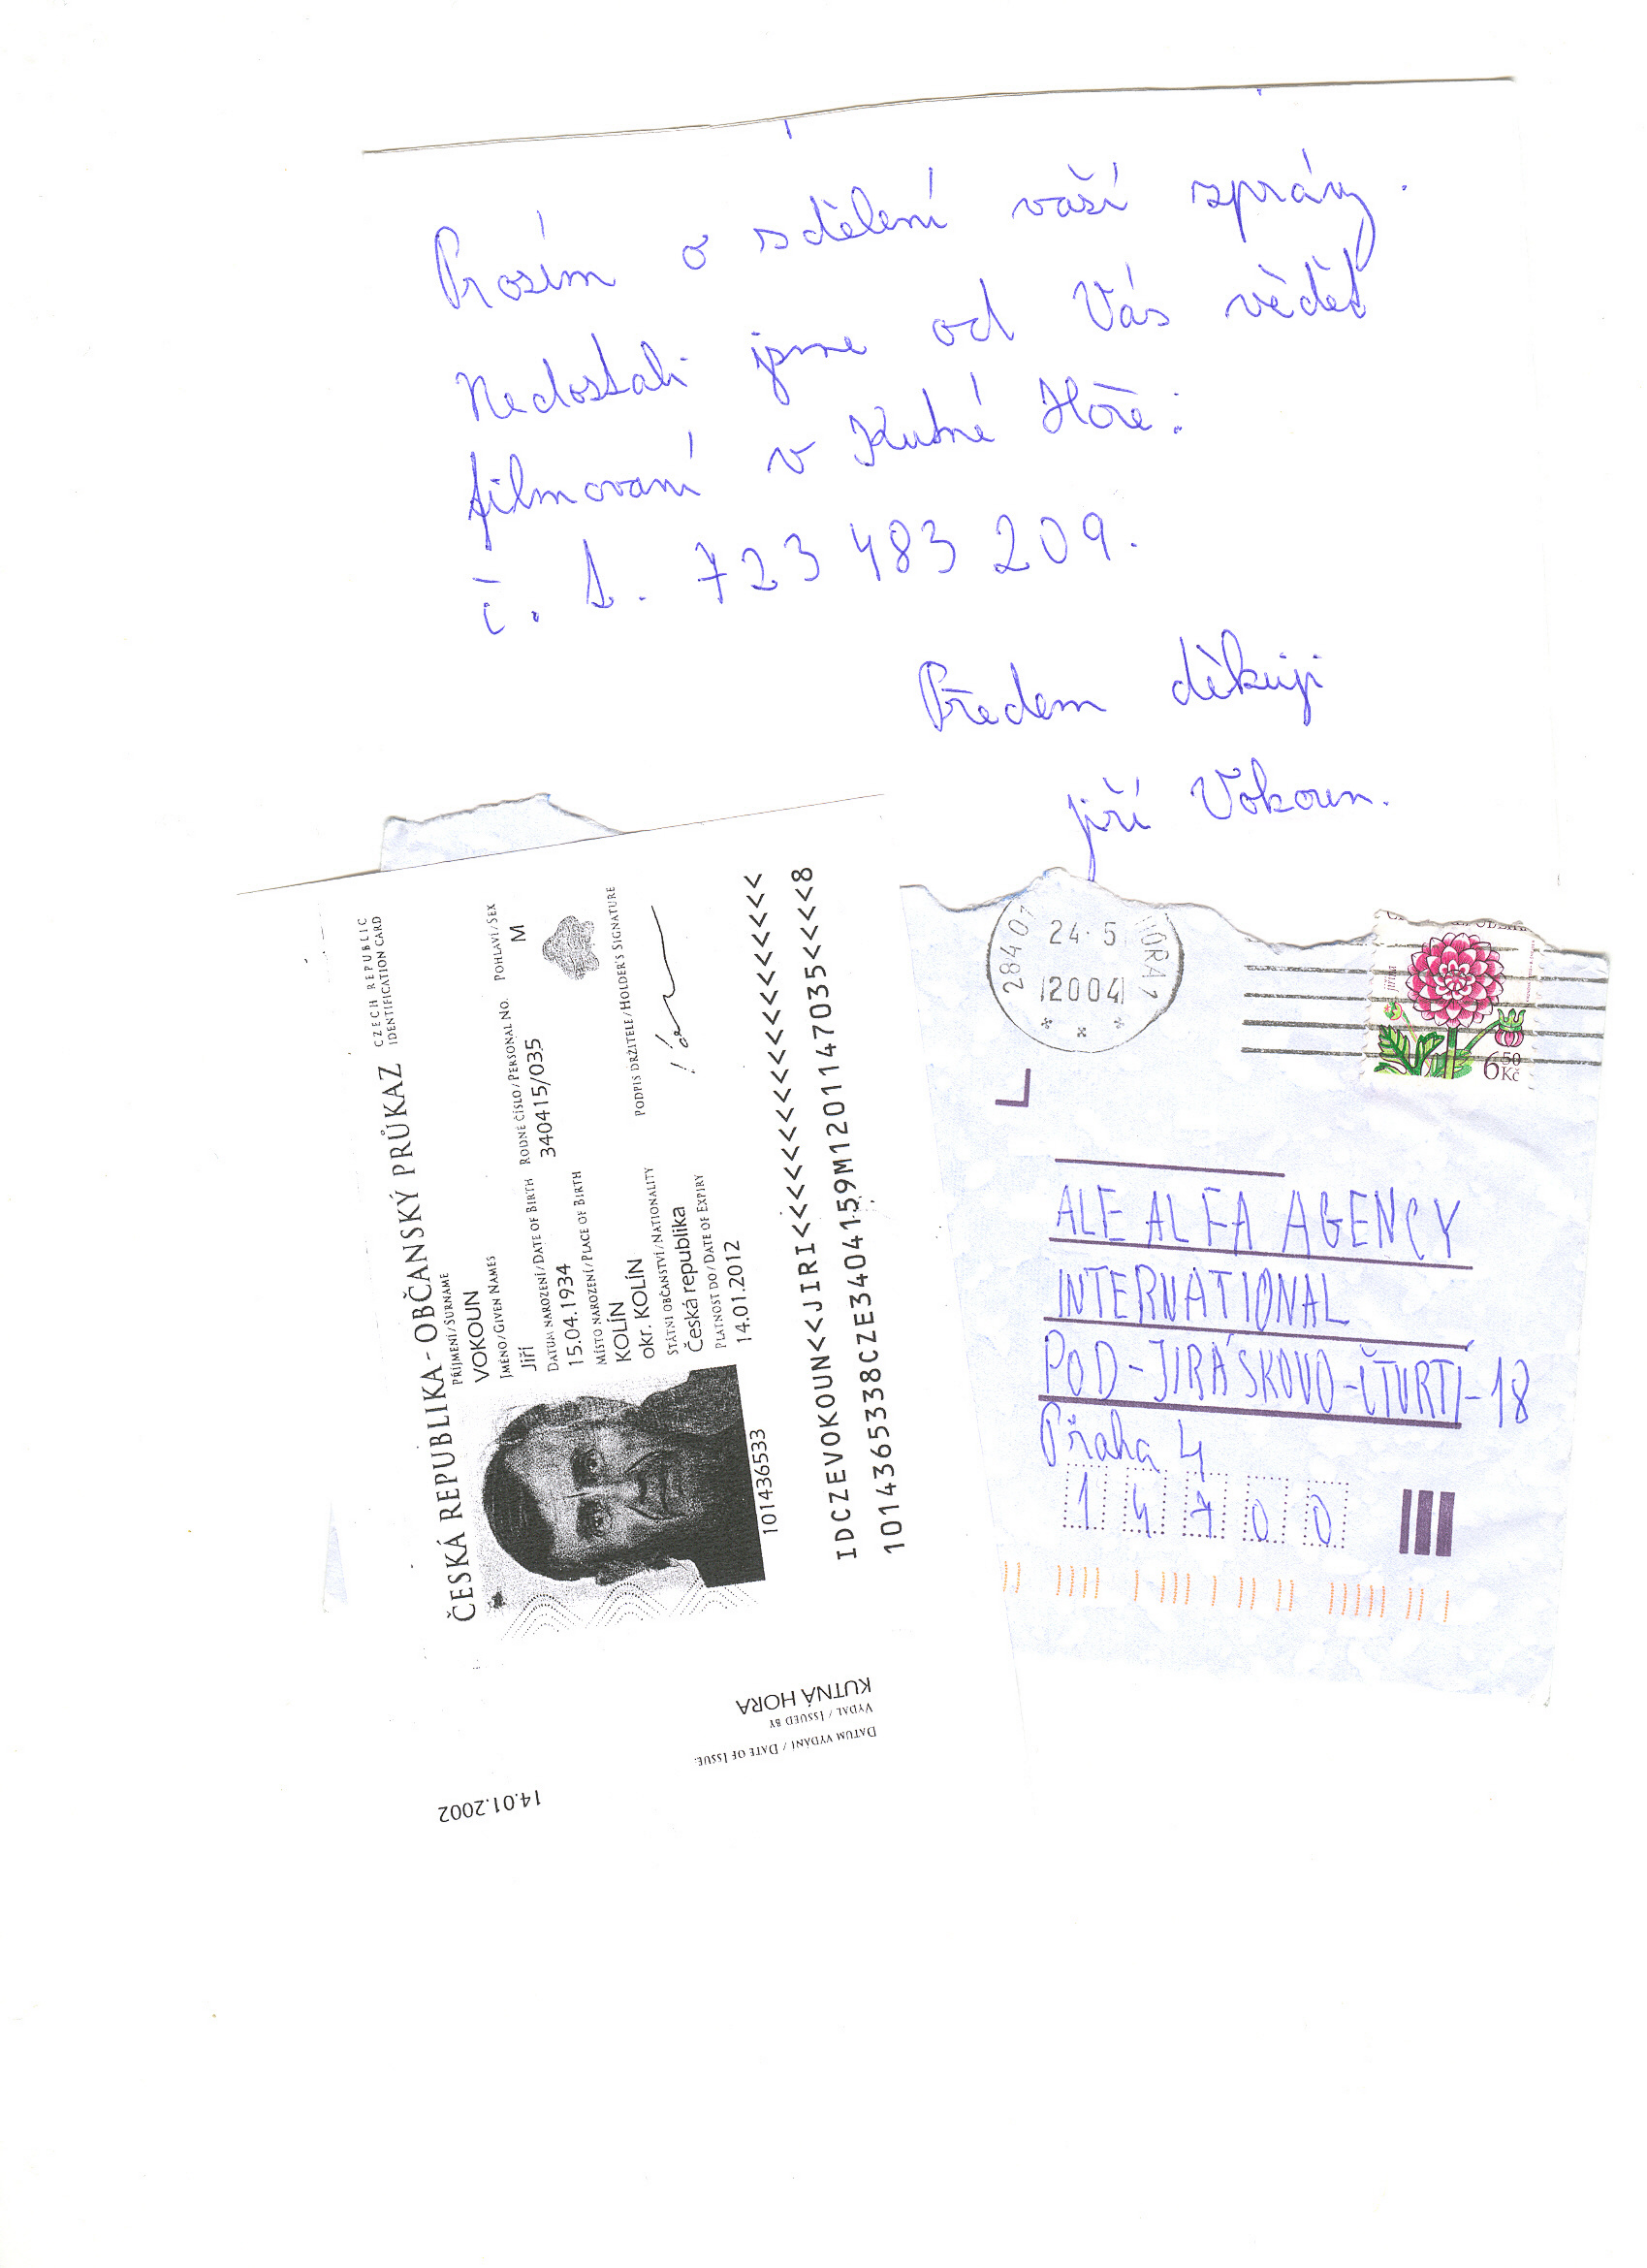 Prosím o sdělení vaší zprávy.
Nedostali jsme od Vás vědět
filmovaní v Kutné Hoře:
č. t. 723 483 209.
Předem děkuji
Jiří Vokoun.
ČESKÁ REPUBLIKA - OBČANSKÝ PRŮKAZ
CZECH REPUBLIC
IDENTIFICATION CARD
PŘÍJMENÍ/SURNAME
VOKOUN
JMÉNO/GIVEN NAMES
POHLAVÍ/SEX
Jiří
M
DATUM NAROZENÍ/DATE OF BIRTH
RODNÉ ČÍSLO/PERSONAL NO.
15.04.1934
340415/035
MÍSTO NAROZENÍ/PLACE OF BIRTH
KOLÍN
okr. KOLÍN
STÁTNÍ OBČANSTVÍ/NATIONALITY
PODPIS DRŽITELE/HOLDER'S SIGNATURE
Česká republika
PLATNOST DO/DATE OF EXPIRY
14.01.2012
101436533
IDCZEVOKOUN<<JIRI<<<<<<<<<<<<<<<<<<<
1014365338CZE3404159M1201147035<<<<8
14.01.2002
DATUM VYDÁNÍ / DATE OF ISSUE:
VYDAL / ISSUED BY
KUTNÁ HORA
284 01
HORA 1
24. 5
2004
jiřina
6 50
Kč
ALE ALFA AGENCY
INTERNATIONAL
POD-JIRÁSKOVO-ČTVRTÍ-18
Praha 4
14700